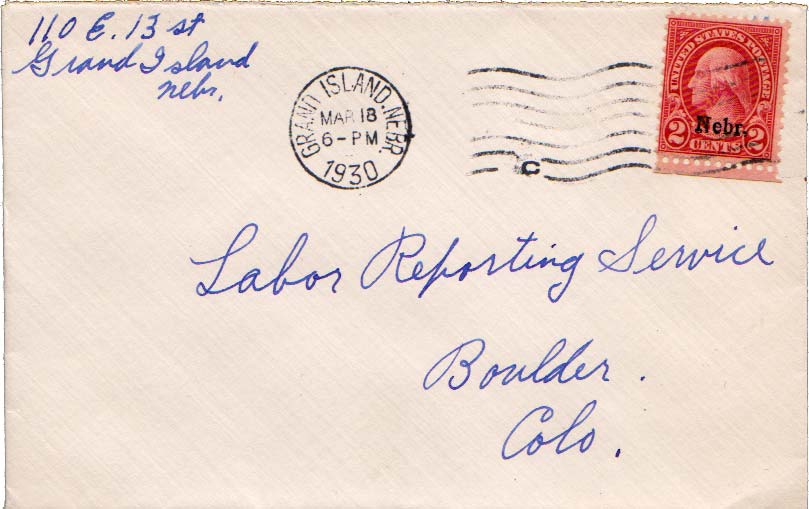 110 E. 13 st
Grand Island
Nebr.
GRAND ISLAND, NEBR.
MAR 18
6-PM
1930
C
UNITED STATES POSTAGE
Nebr.
2 CENTS 2
Labor Reporting Service
Boulder.
Colo.